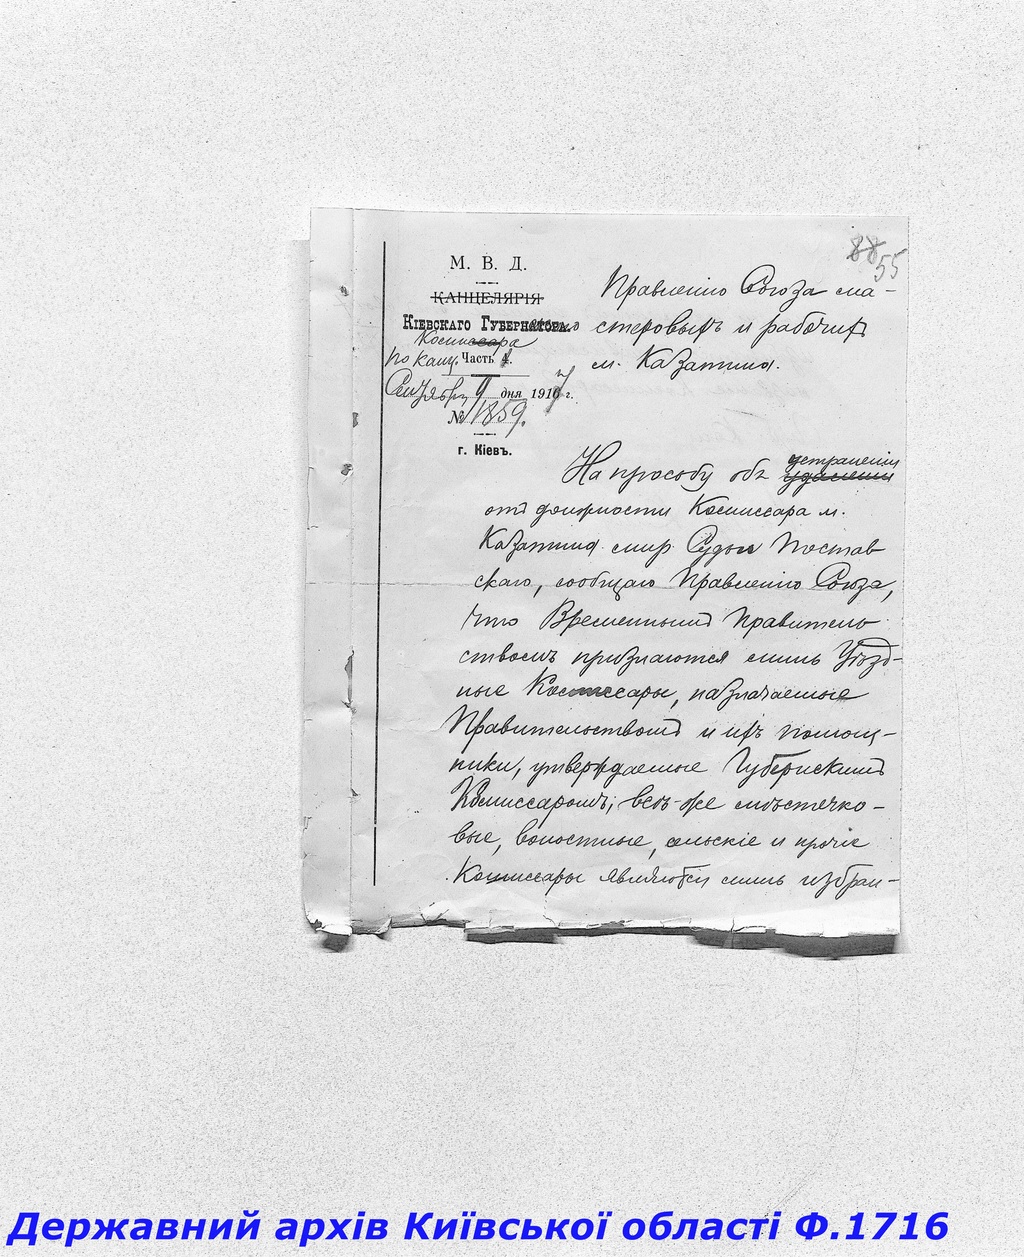 88
55
М. В. Д.
КАНЦЕЛЯРІЯ
КІЕВСКАГО ГУБЕРНАТОРА.
Комиссара
по канц. Часть 1.
Сентября 9 дня 1917 г.
№ 11859.
г. Кіевъ.
Правленію Союза ма-
стеровыхъ и рабочихъ
м. Казатина.
На просьбу объ устраненіи
удаленіи
отъ должности Комиссара м.
Казатина мир. Судьи Постав
скаго, сообщаю Правленію Союза,
что Временнымъ Правитель
ствомъ признаются лишь Уѣзд-
ные Комиссары, назначаемые
Правительствомъ и ихъ помощ-
ники, утверждаемые Губернскимъ
Комиссаромъ; всѣ же мѣстечко-
вые, волостные, сельскіе и прочіе
Комиссары являются лишь избран-
Державний архів Київської області Ф.1716